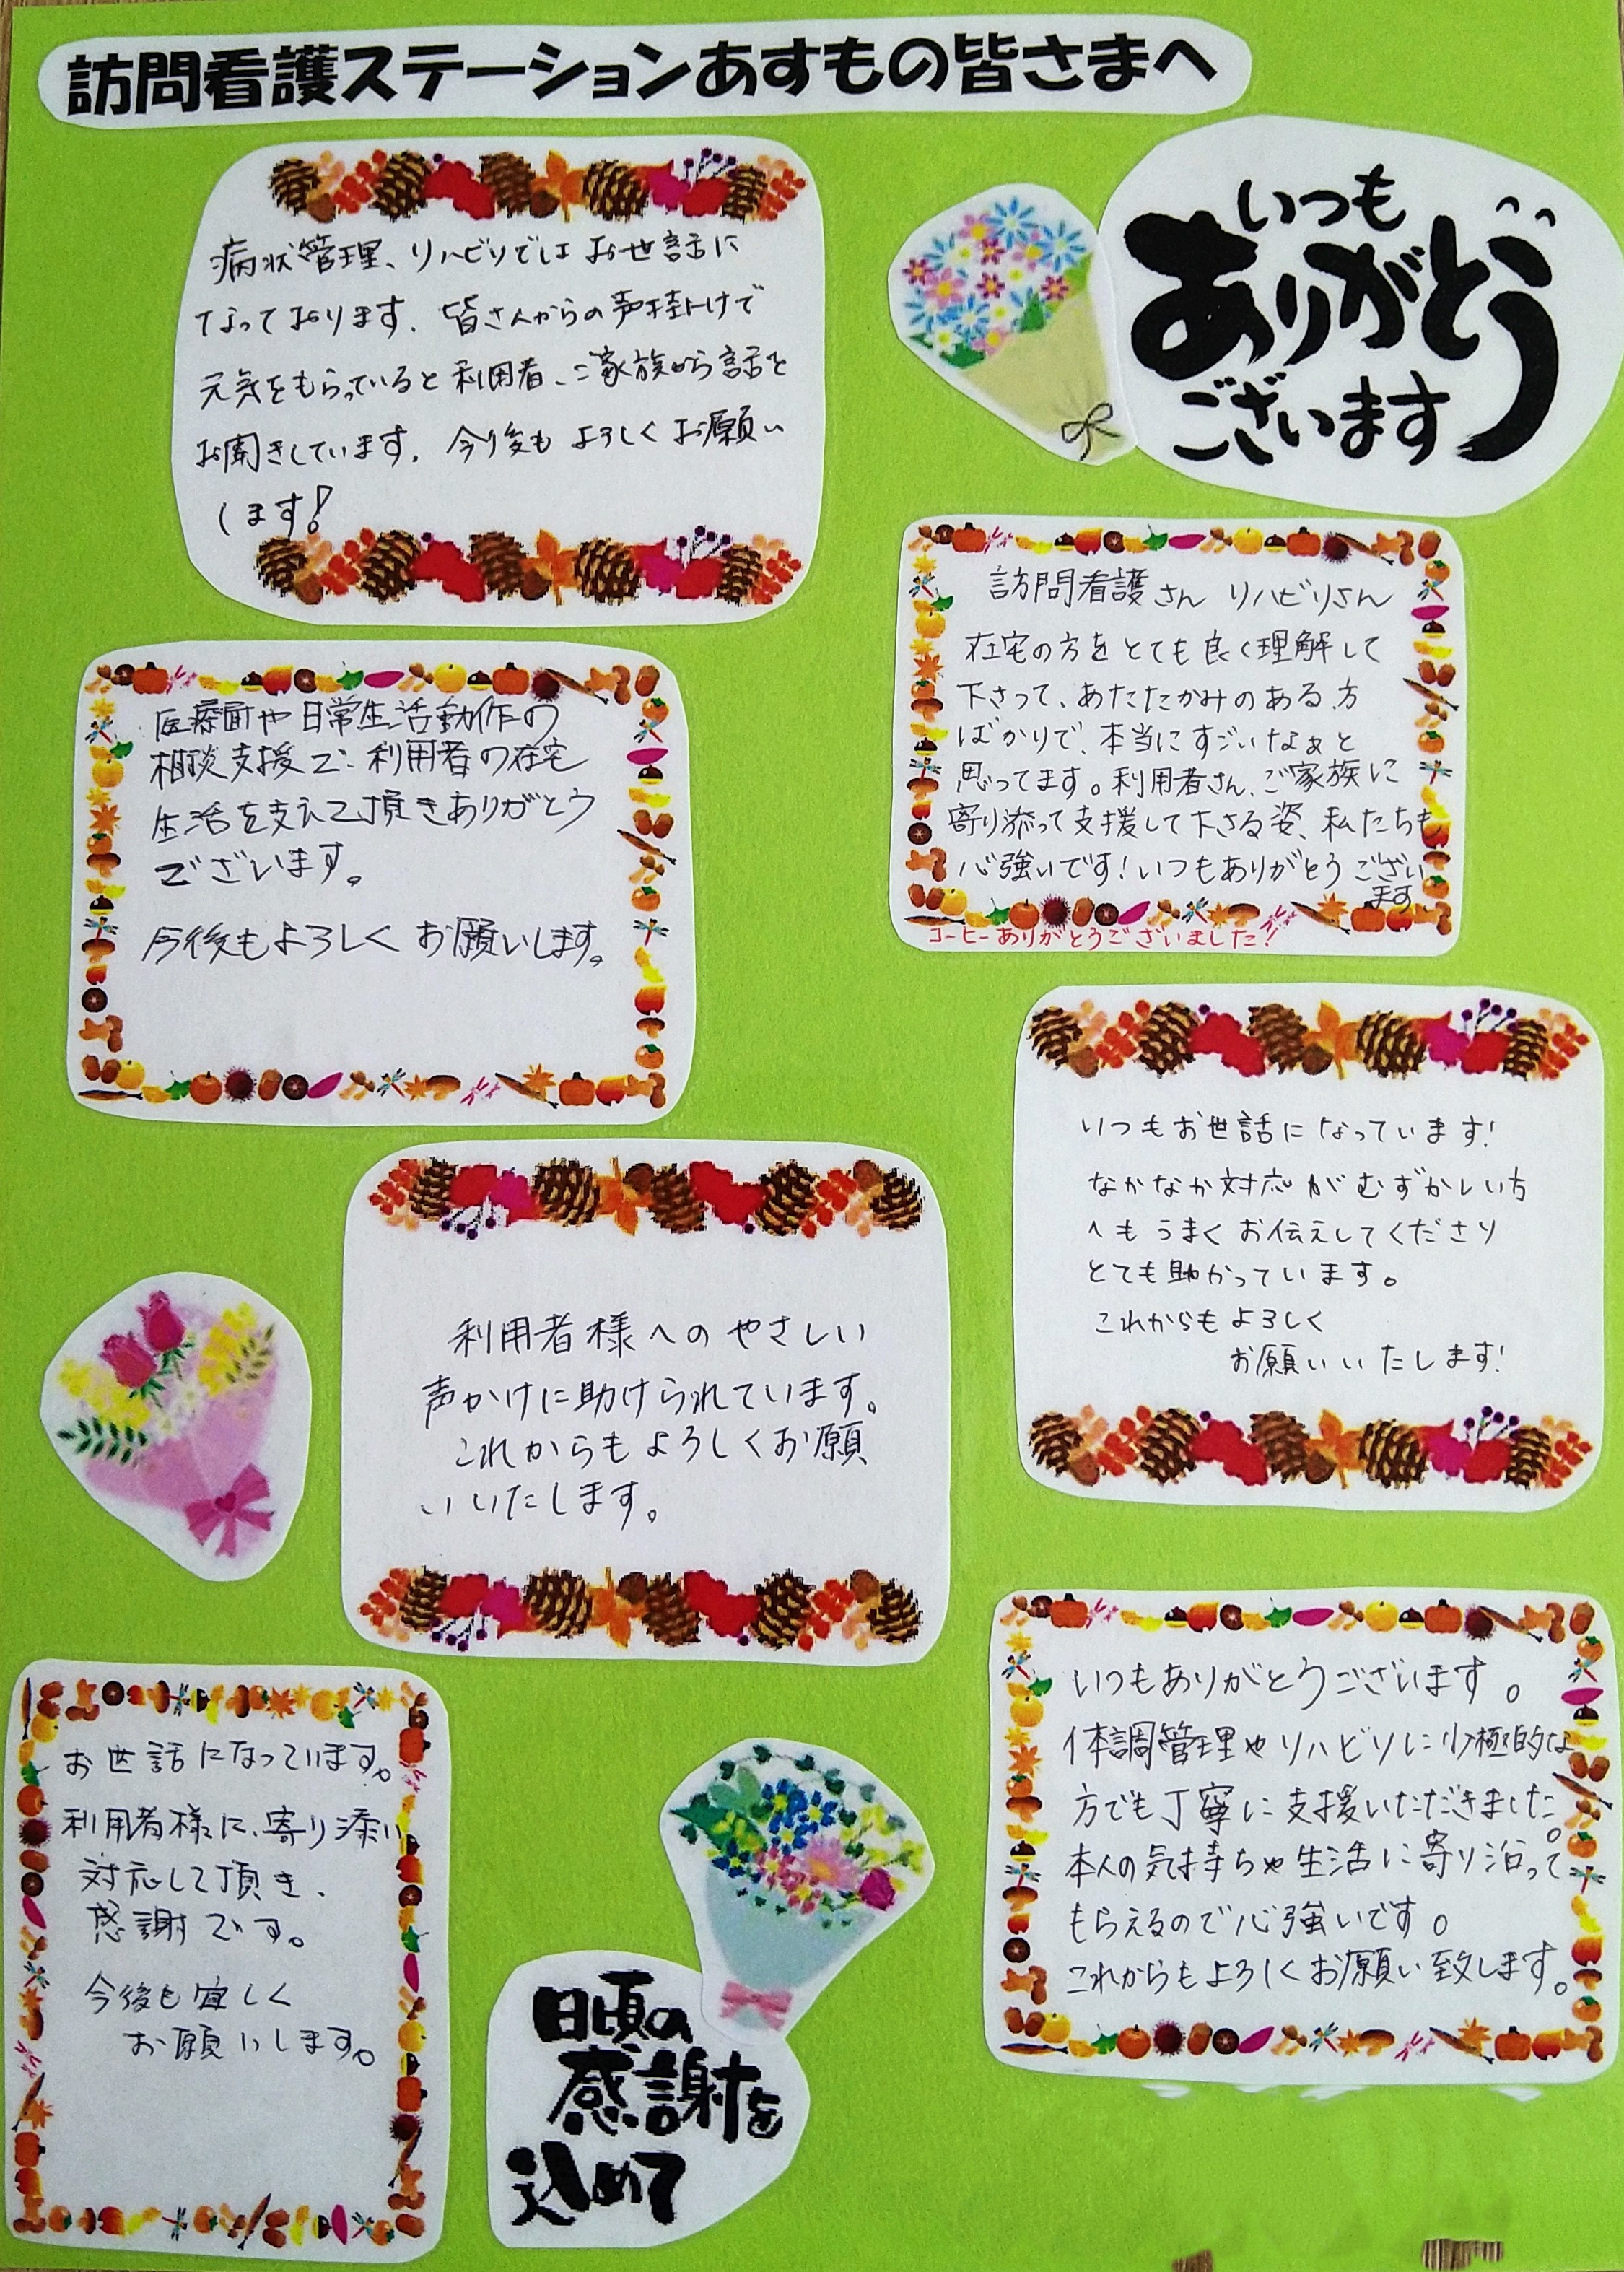 訪問看護ステーションあすもの皆さまへ
いつも
ありがとう
ございます
病状管理、リハビリではお世話に
なっております。皆さんからの声掛けで
元気をもらっていると利用者、ご家族から話を
お聞きしています。今後もよろしくお願い
します!
訪問看護さん リハビリさん
在宅の方をとても良く理解して
下さって、あたたかみのある方
ばかりで、本当にすごいなぁと
思ってます。利用者さん、ご家族に
寄り添って支援して下さる姿、私たちも
心強いです!いつもありがとうござい
ます
コーヒーありがとうございました!
医療面や日常生活動作の
相談支援で、利用者の在宅
生活を支えて頂きありがとう
ございます。
今後もよろしくお願いします。
いつもお世話になっています!
なかなか対応がむずかしい方
へもうまくお伝えしてくださり
とても助かっています。
これからもよろしく
お願いいたします!
利用者様へのやさしい
声かけに助けられています。
これからもよろしくお願
いいたします。
いつもありがとうございます。
体調管理やリハビリに少極的な
方でも丁寧に支援いただきました。
本人の気持ちや生活に寄り沿って
もらえるので心強いです。
これからもよろしくお願い致します。
お世話になっています。
利用者様に、寄り添い
対応して頂き、
感謝です。
今後も宜しく
お願いします。
日頃の
感謝を
込めて